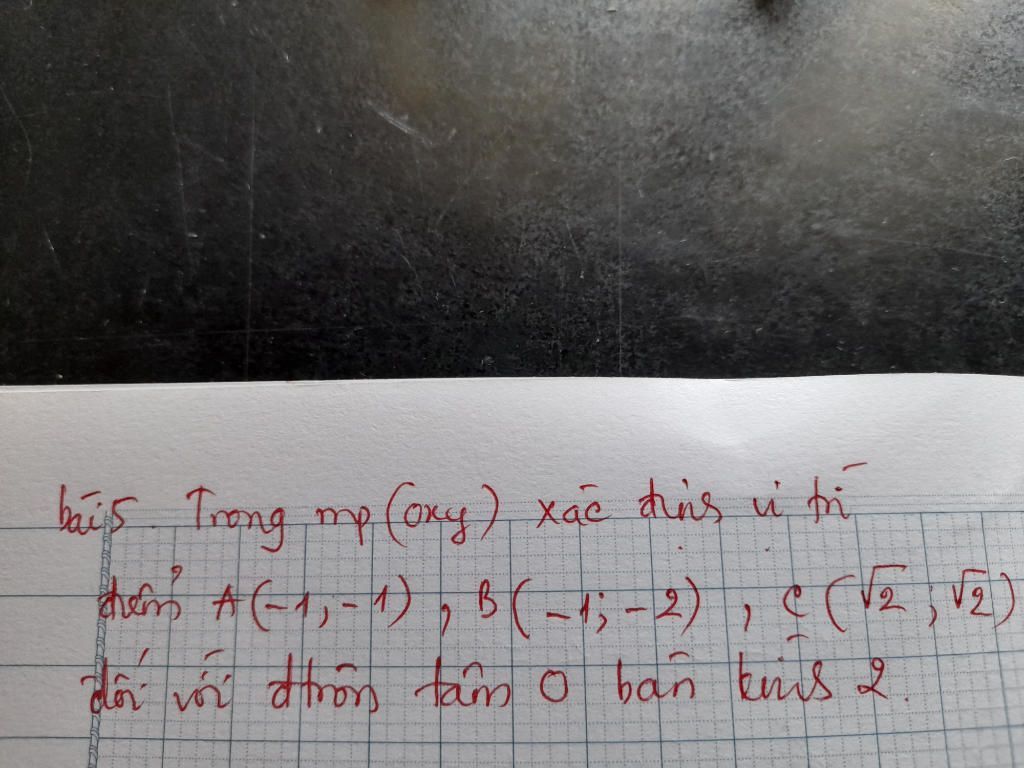 bài 5. Trong mp (oxy) xác định vị trí
điểm A(-1; -1), B(-1; -2), C(√2; √2)
đối với đtròn tâm O bán kính 2.